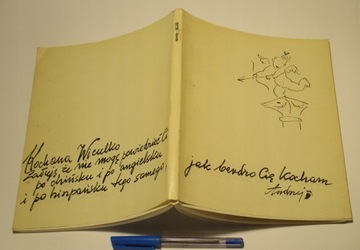 Kochana Wiculko
Żałuję, że nie mogę powiedzieć Ci
po chińsku i po angielsku
i po hiszpańsku tego samego
jak bardzo Cię kocham
Andrzej